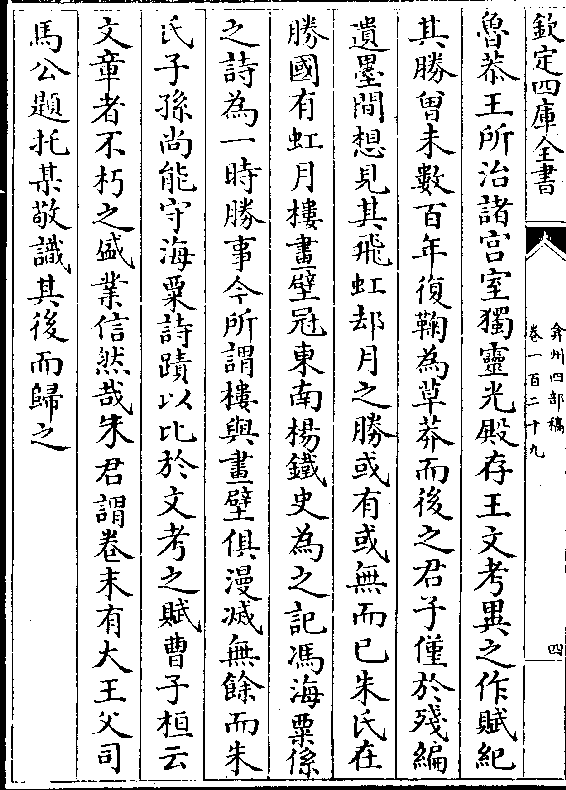 欽定四庫全書
弇州四部稿
卷一百二十九
四
魯恭王所治諸宫室獨靈光殿存王文考異之作賦紀
其勝曾未數百年復鞠為草莽而後之君子僅於殘編
遺墨間想見其飛虹却月之勝或有或無而已朱氏在
勝國有虹月樓畫壁冠東南楊鐵史為之記馮海粟係
之詩為一時勝事今所謂樓與畫壁俱漫滅無餘而朱
氏子孫尚能守海粟詩蹟以比於文考之賦曹子桓云
文章者不朽之盛業信然哉朱君謂卷末有大王父司
馬公題托某敬識其後而歸之